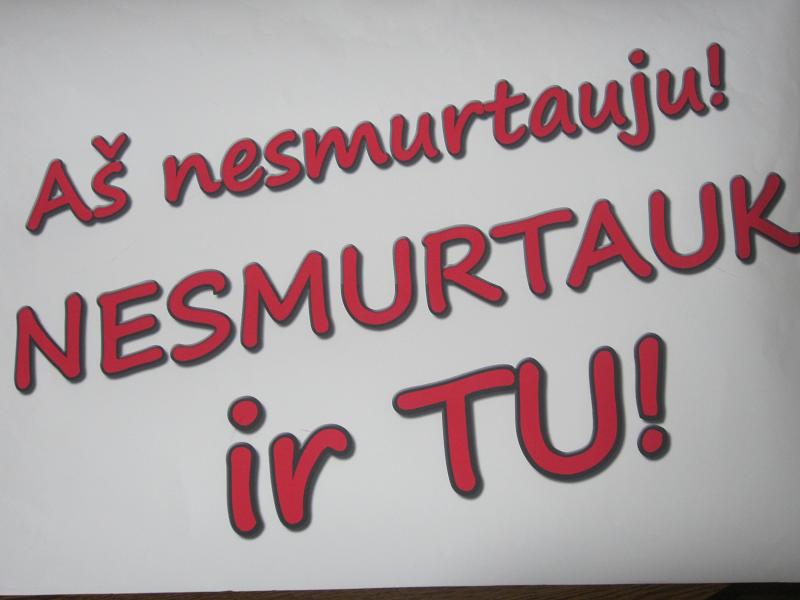 Aš nesmurtauju!
NESMURTAUK
ir TU!